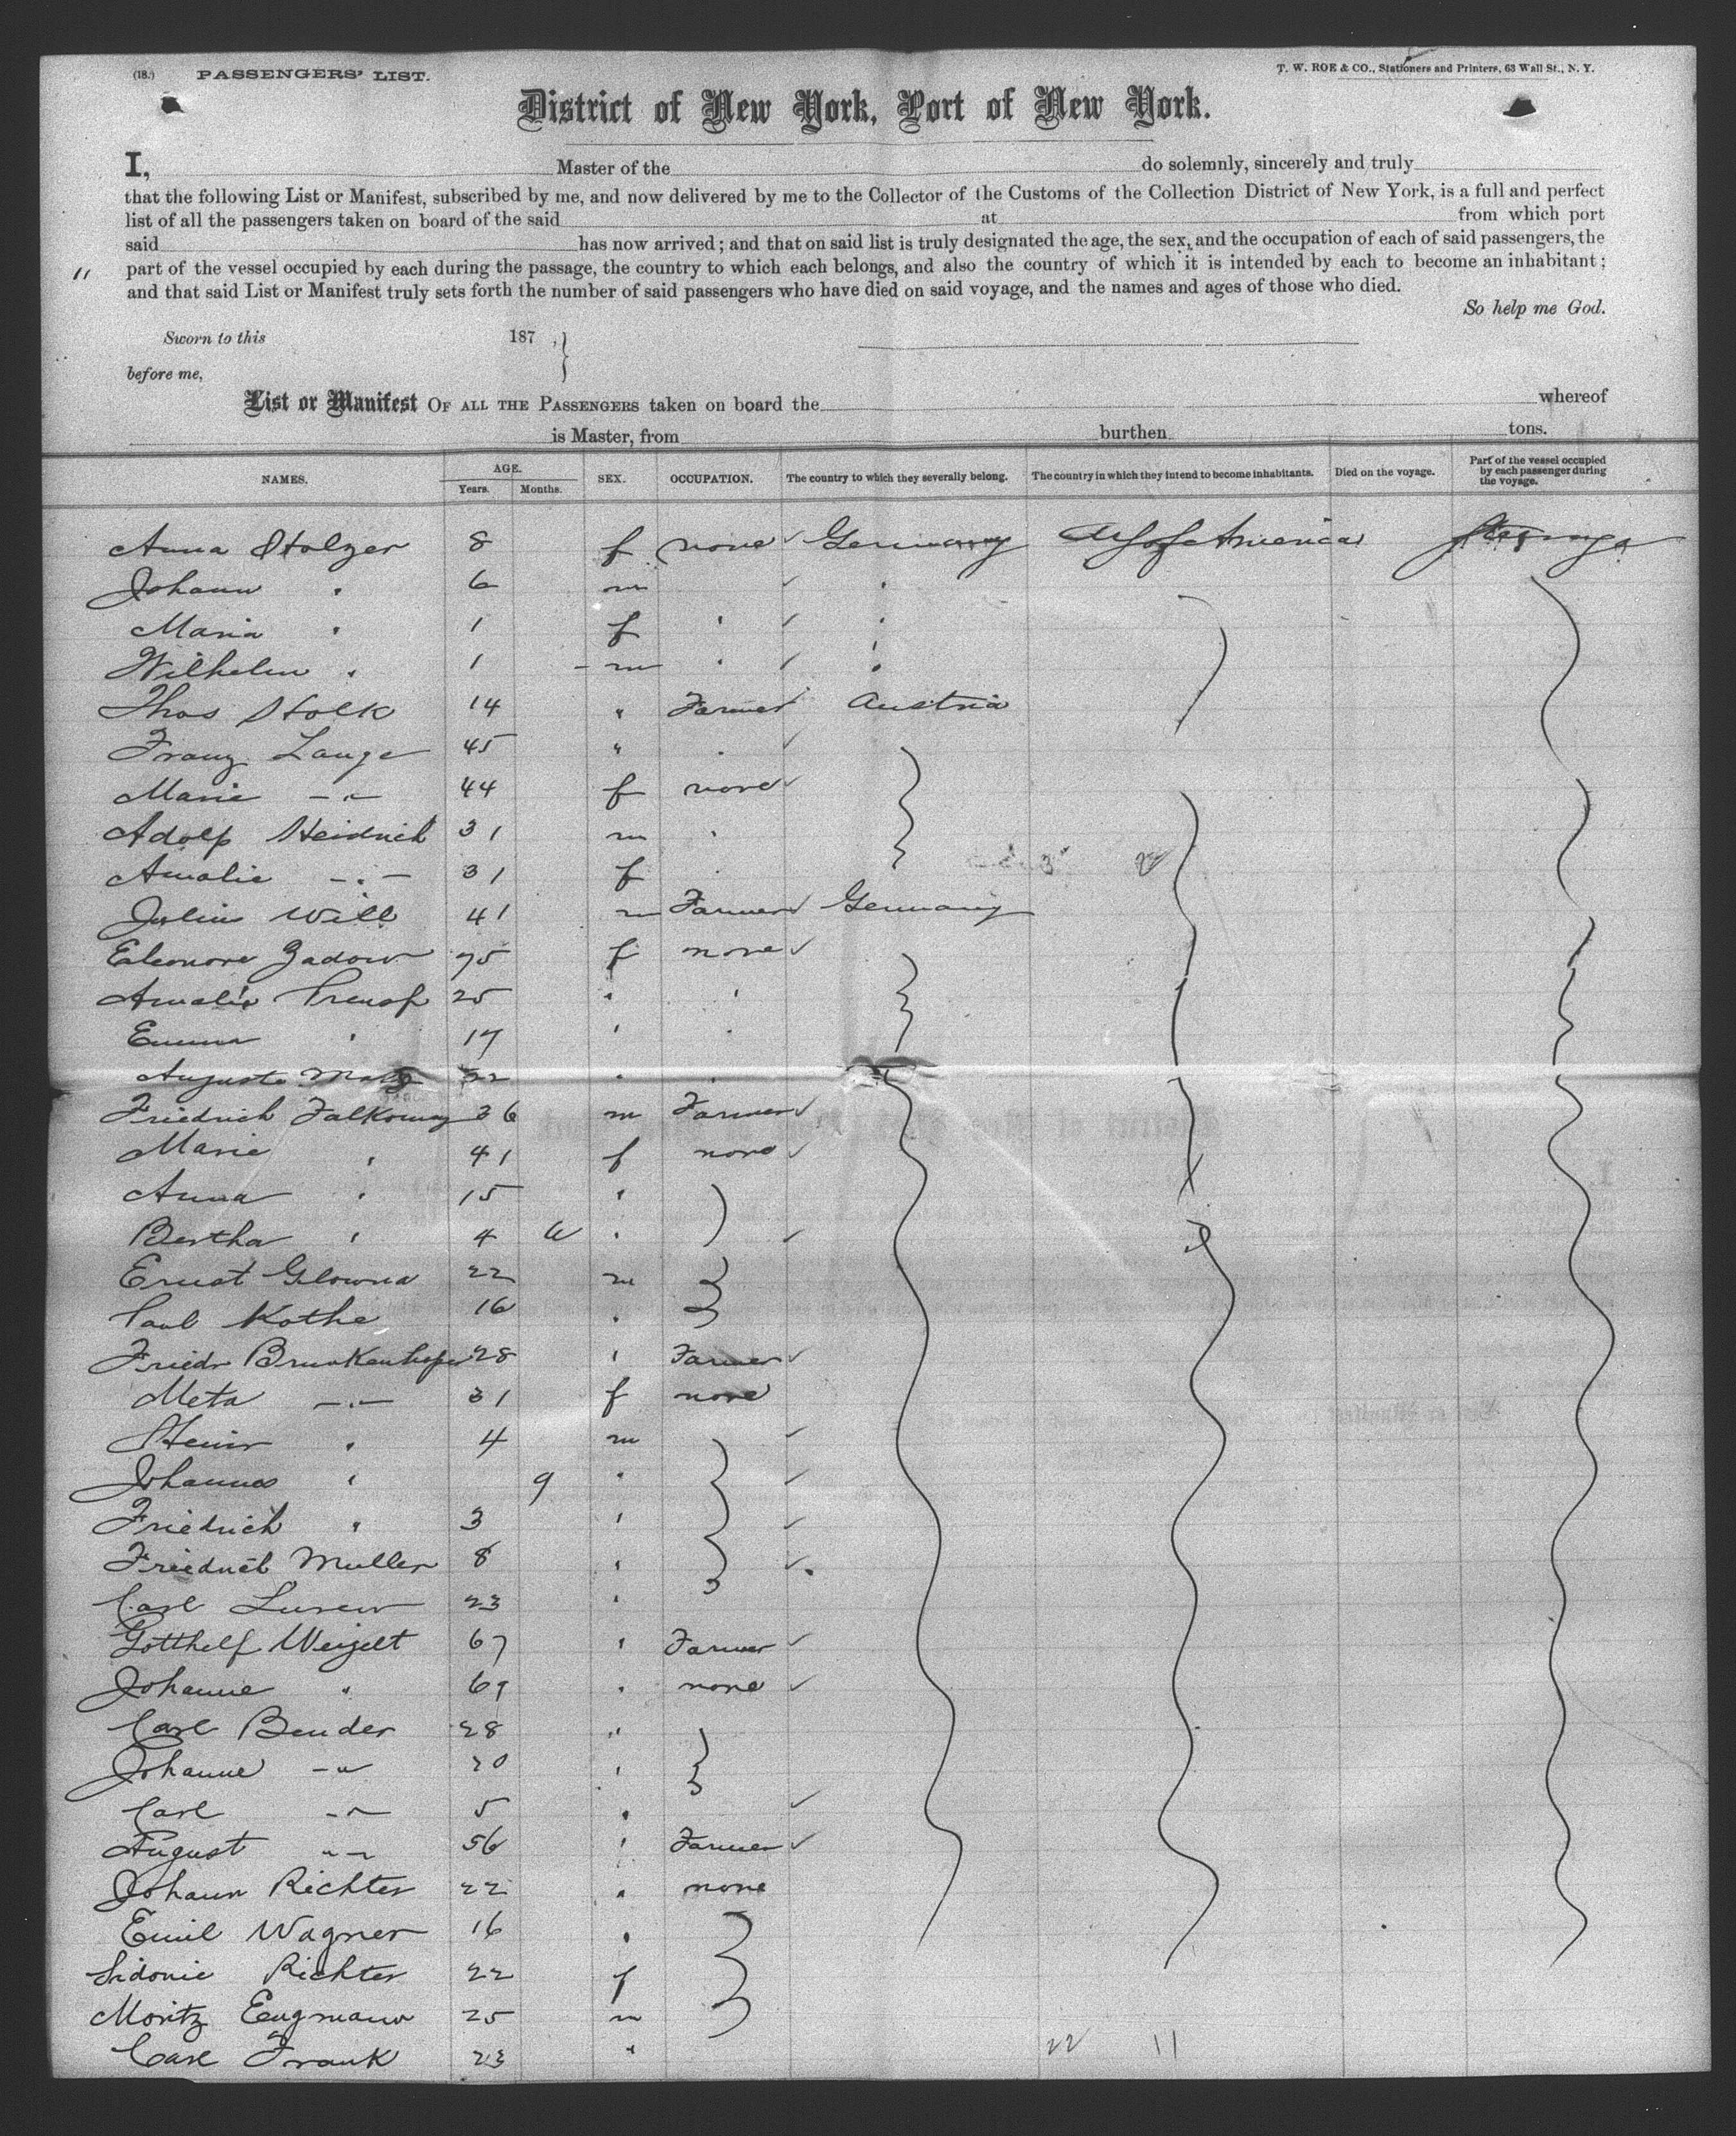 (18.) PASSENGERS' LIST. T. W. ROE & CO., Stationers and Printers, 63 Wall St., N. Y.
District of New York, Port of New York.
I, Master of the do solemnly, sincerely and truly
that the following List or Manifest, subscribed by me, and now delivered by me to the Collector of the Customs of the Collection District of New York, is a full and perfect
list of all the passengers taken on board of the said at from which port
said has now arrived; and that on said list is truly designated the age, the sex, and the occupation of each of said passengers, the
" part of the vessel occupied by each during the passage, the country to which each belongs, and also the country of which it is intended by each to become an inhabitant;
and that said List or Manifest truly sets forth the number of said passengers who have died on said voyage, and the names and ages of those who died.
So help me God.
Sworn to this 187 ,
before me,
List or Manifest OF ALL THE PASSENGERS taken on board the whereof
is Master, from burthen tons.
NAMES. AGE. Years. Months. SEX. OCCUPATION. The country to which they severally belong. The country in which they intend to become inhabitants. Died on the voyage. Part of the vessel occupied by each passenger during the voyage.
Anna Stolzer 8 f none Germany America Steerage
Johann " 6 m
Maria " 1 f "
Wilhelm " 1 m "
Thos Stolk 14 " Farmer Austria
Franz Lange 45 " "
Marie " 44 f none
Adolf Heidrich 31 m "
Amalie " 31 f "
Julius Will 41 m Farmer Germany
Eleonore Zadow 75 f none
Amalie 25 " "
Emma " 17 " "
Auguste 22 " "
Friedrich Falkoway 36 m Farmer
Marie " 41 f none
Anna " 15 "
Bertha " 4 6 "
Ernst Glowna 22 m
Paul Kothe 16 "
Friedr 28 " Farmer
Meta " 31 f none
Heinr " 4 m
Johannes " 9 "
Friedrich " 3 "
Friedrich Muller 8 "
Carl 23 "
Gotthelf Weigelt 67 " Farmer
Johanne " 69 " none
Carl Bender 28 "
Johanne " 20 "
Carl " 5 "
August " 56 " Farmer
Johann Richter 22 " none
Emil Wagner 16 "
Sidonie Richter 22 f
Moritz Engmann 25 m
Carl Frank 23 " 22 11